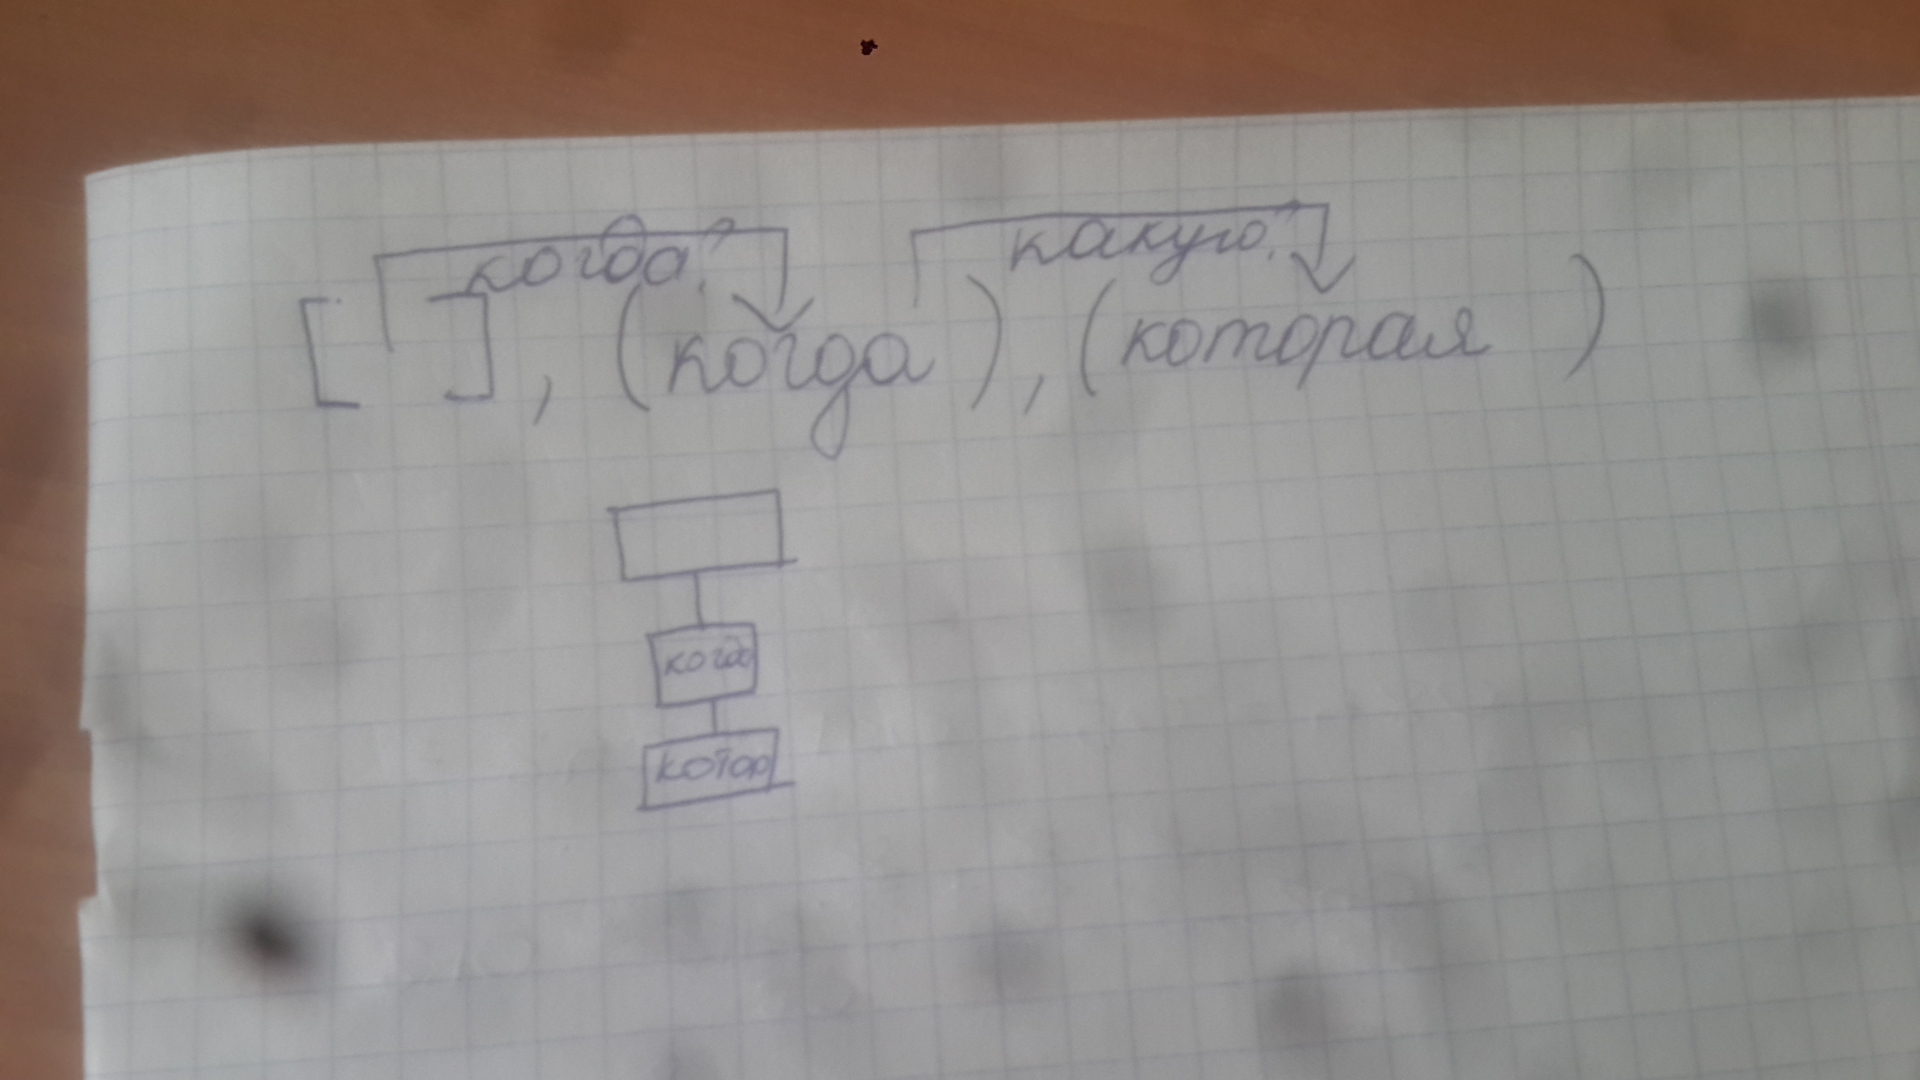 когда? какую?
[ ], (когда), (которая )
когда
котор